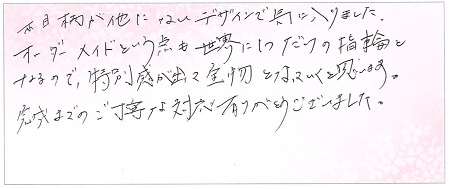 木目柄が他にないデザインで気に入りました。
オーダーメイドという点も世界に1つだけの指輪と
なるので、特別感が出て宝物となっていくと思います。
完成までのご丁寧な対応有りがとうございました。